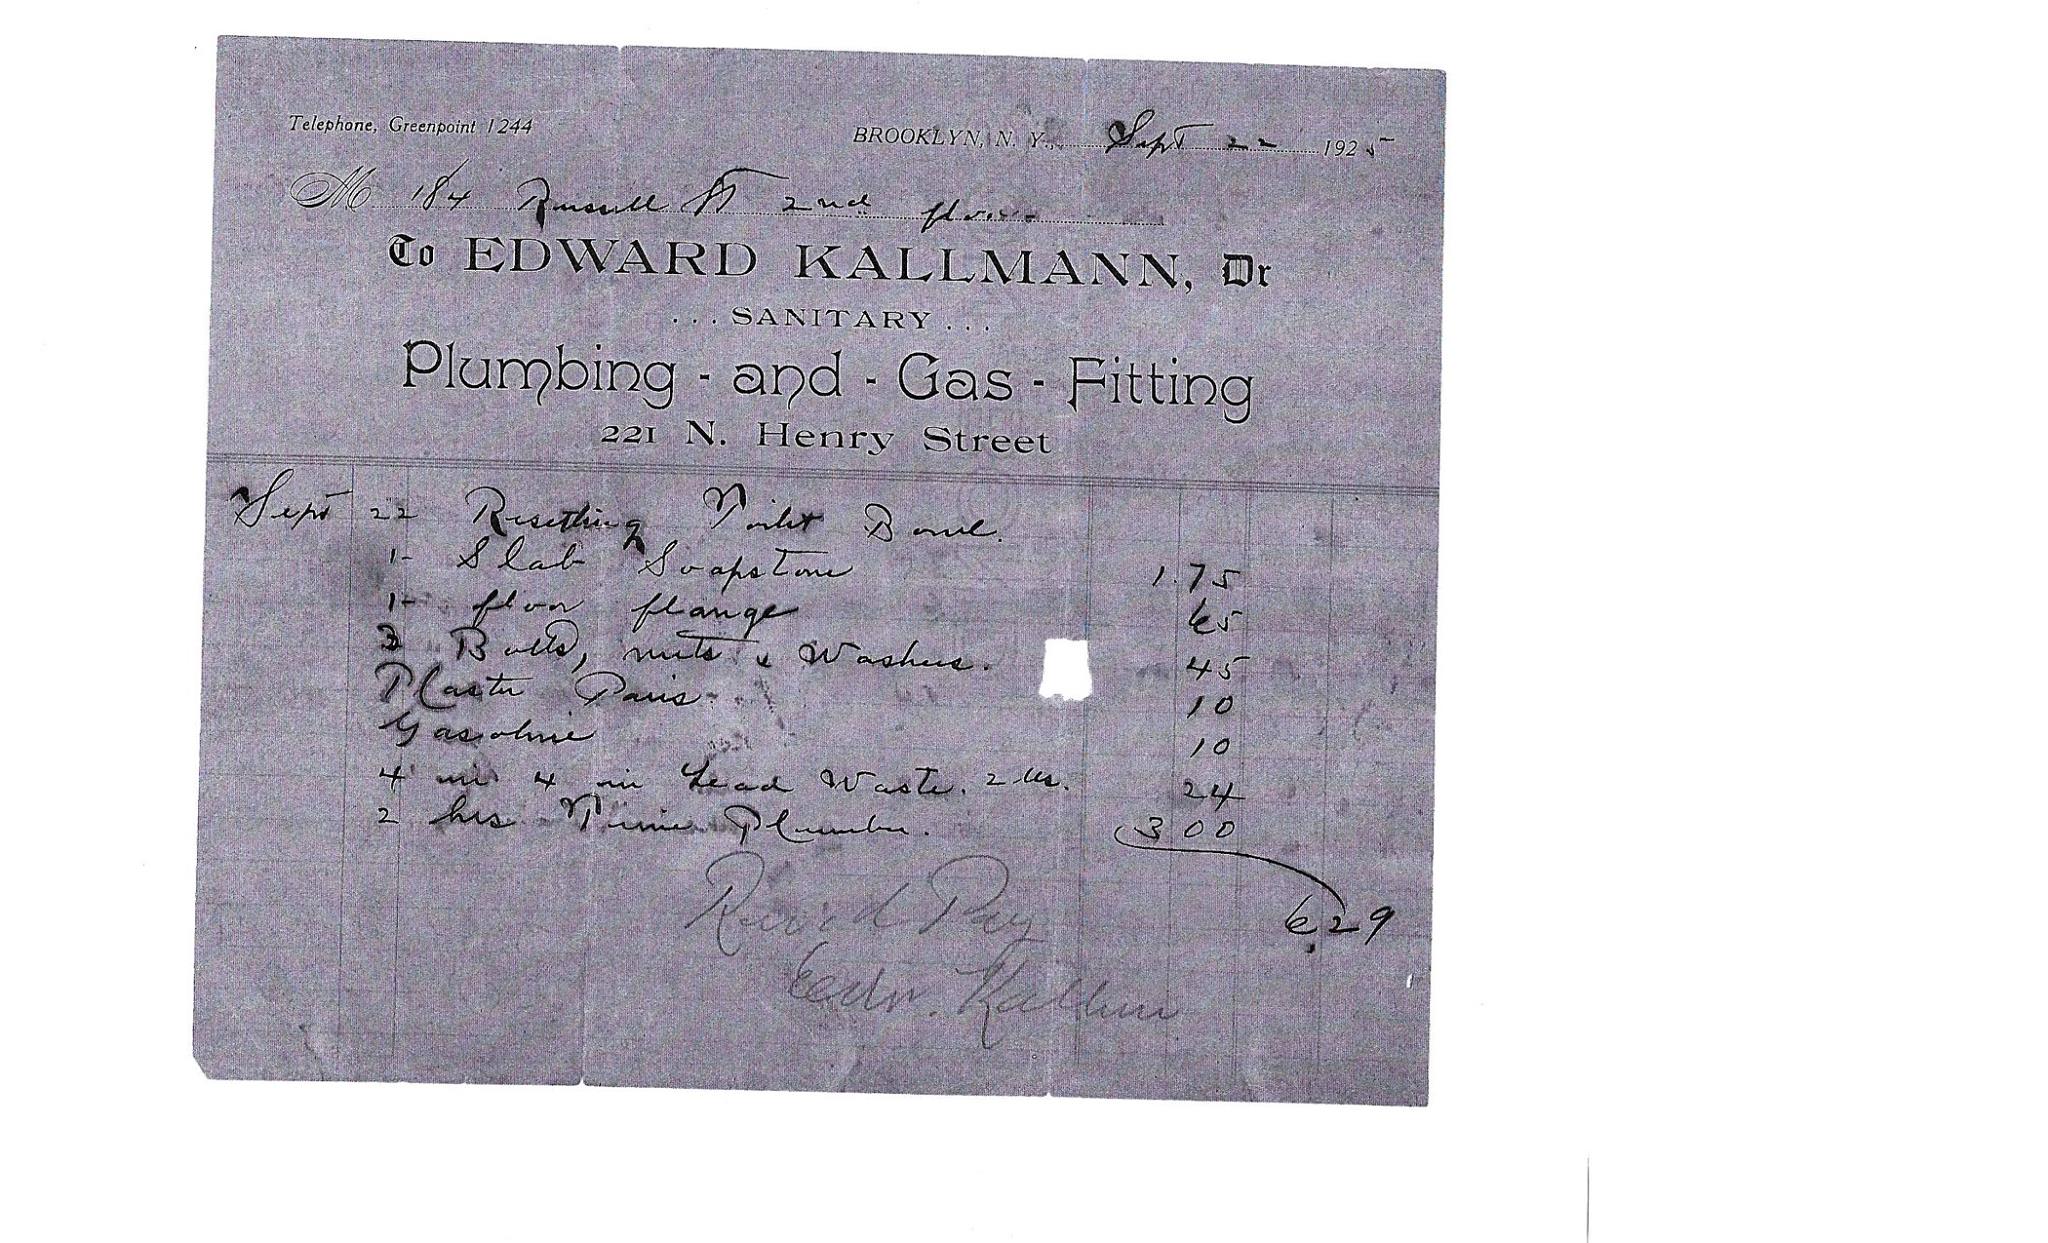 Telephone, Greenpoint 1244
BROOKLYN, N. Y., Sept 22 1925
M 184 Russell St 2nd floor
To EDWARD KALLMANN, Dr
... SANITARY ...
Plumbing - and - Gas - Fitting
221 N. Henry Street
Sept 22 Resetting Toilet Bowl.
1- Slab Soapstone 1.75
1- floor flange 65
3 Bolts, nuts & Washers. 45
Plaster Paris 10
Gasoline 10
4 in 4 in Lead Waste. 2 lbs. 24
2 hrs Time Plumber. 3 00
6.29
Rec'd Pay
Edw. Kallmann